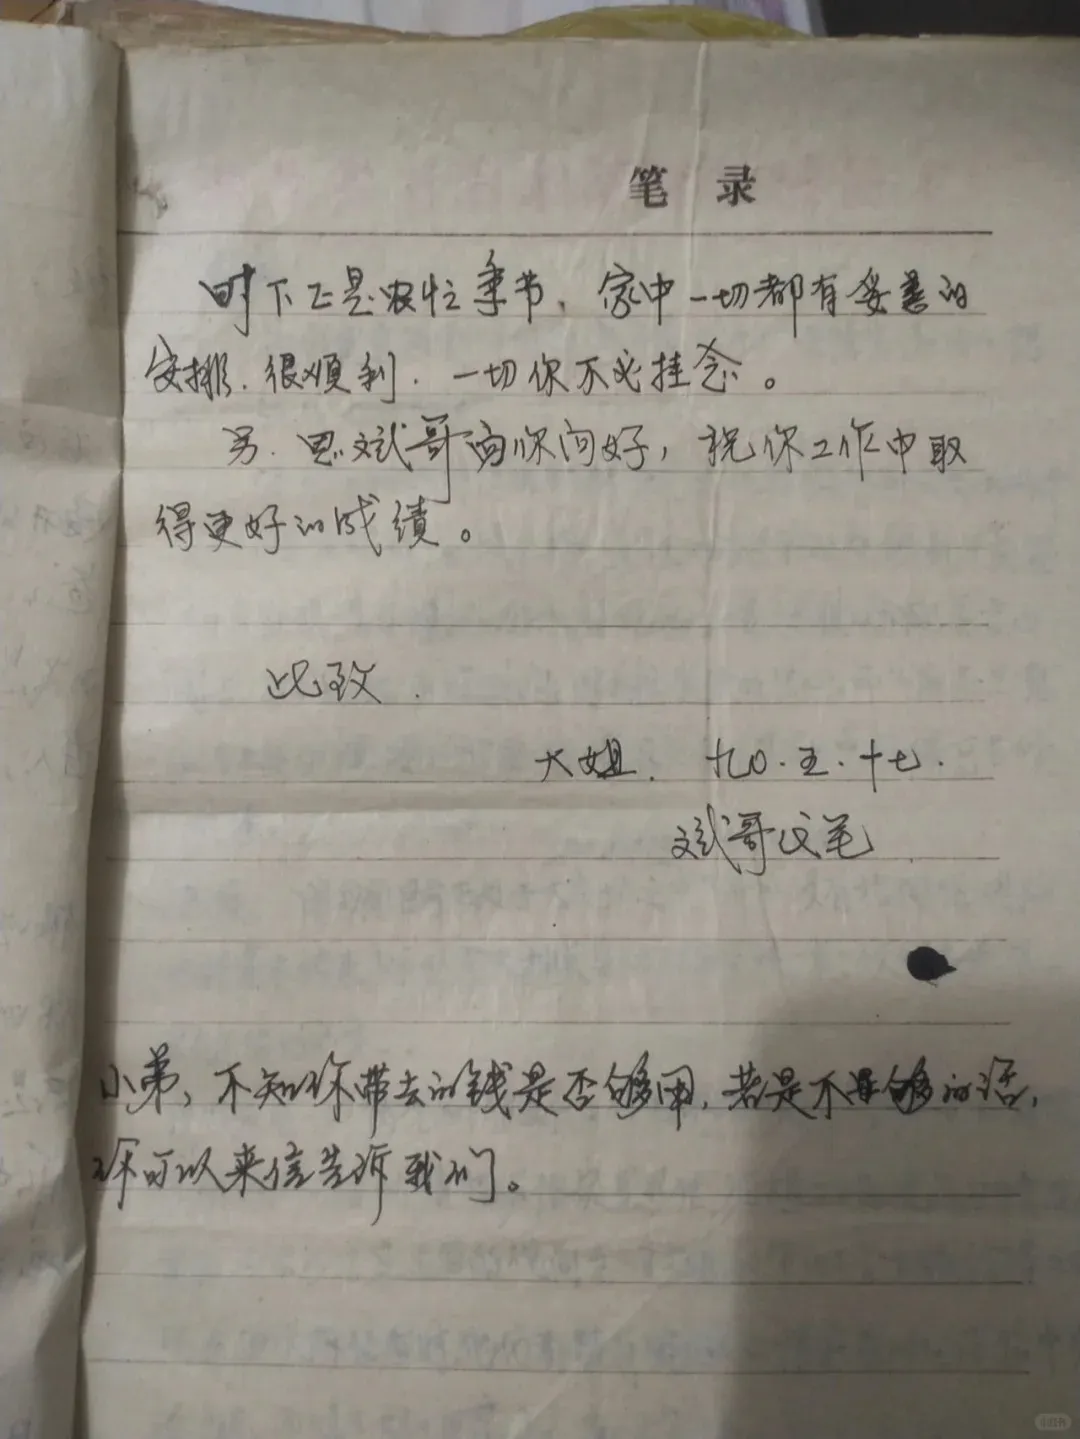 笔录
时下正是农忙季节，家中一切都有妥善的
安排．很顺利．一切你不必挂念。
另．思斌哥向你问好，祝你工作中取
得更好的成绩。
此致．
大姐．九〇．五．十七．
斌哥代笔
小弟，不知你带去的钱是否够用，若是不够的话，
你可以来信告诉我们。
小红书